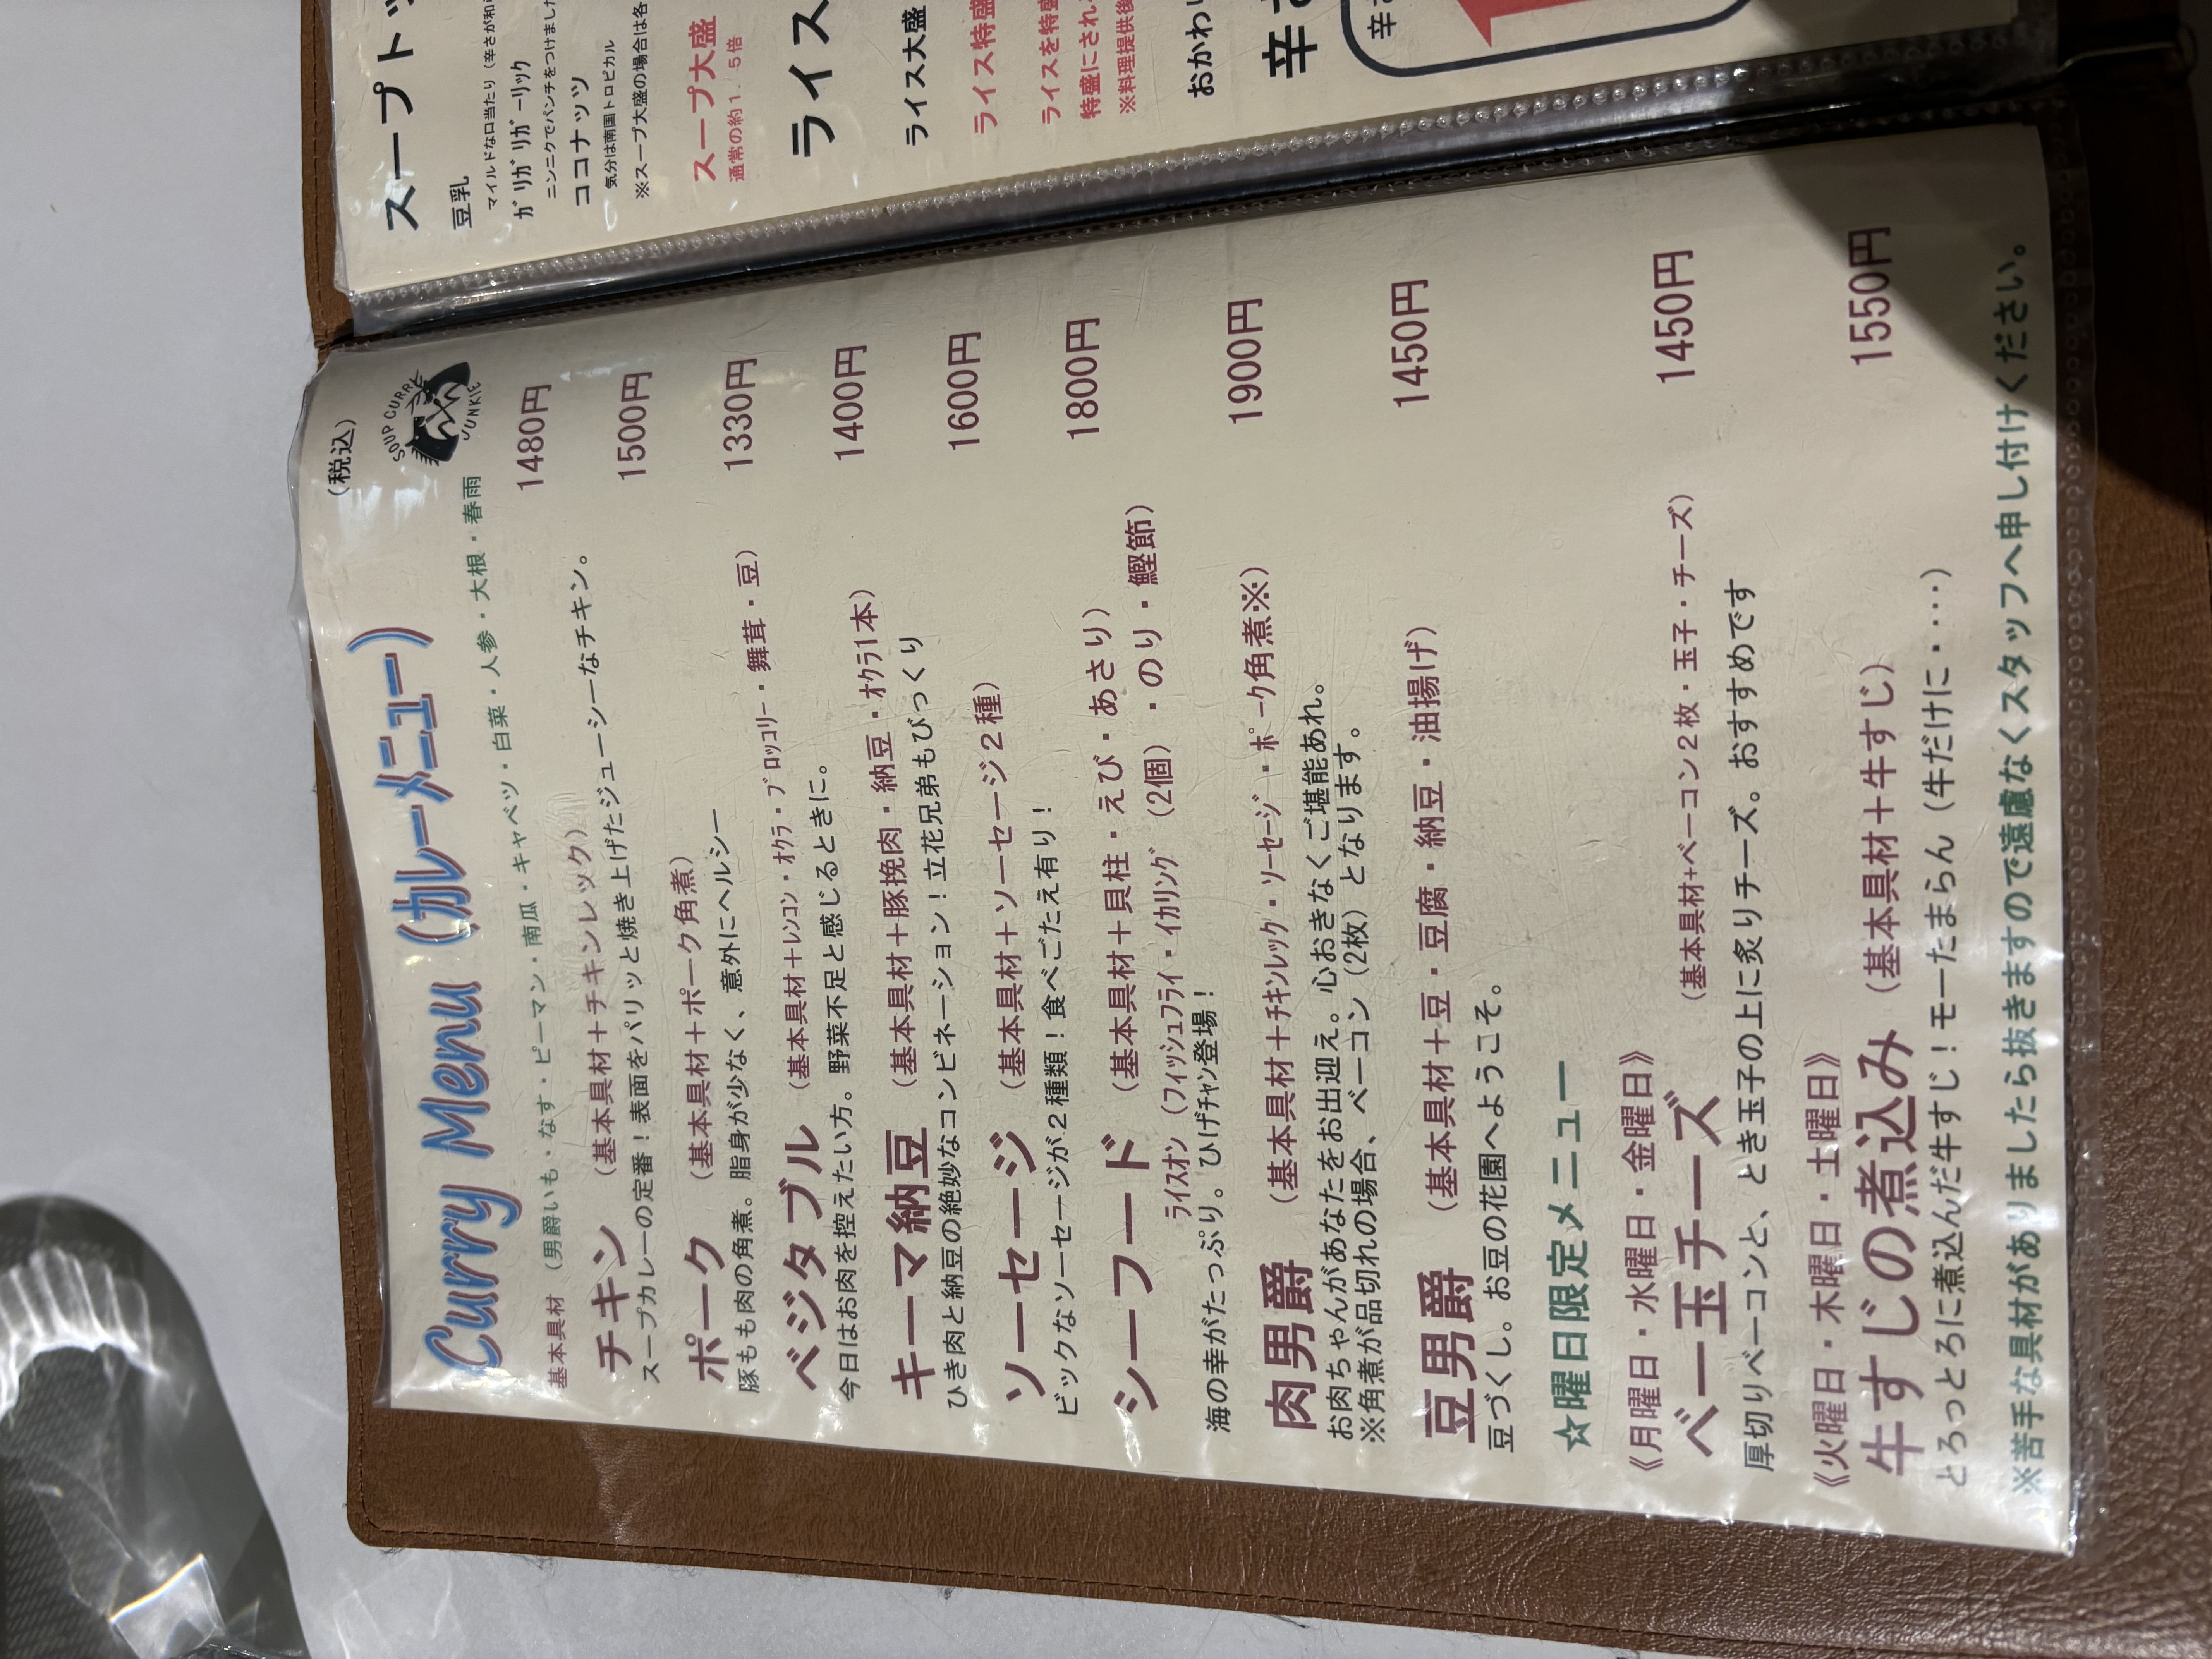 Curry Menu (カレーメニュー)
(税込)
SOUP CURRY
JUNKIE
基本具材 (男爵いも・なす・ピーマン・南瓜・キャベツ・白菜・人参・大根・春雨
チキン (基本具材＋チキンレック) 1480円
スープカレーの定番！表面をパリッと焼き上げたジューシーなチキン。
ポーク (基本具材＋ポーク角煮) 1500円
豚もも肉の角煮。脂身が少なく、意外にヘルシー
ベジタブル (基本具材＋ﾚﾝｺﾝ・ｵｸﾗ・ﾌﾞﾛｯｺﾘｰ・舞茸・豆) 1330円
今日はお肉を控えたい方。野菜不足と感じるときに。
キーマ納豆 (基本具材＋豚挽肉・納豆・ｵｸﾗ1本) 1400円
ひき肉と納豆の絶妙なコンビネーション！立花兄弟もびっくり
ソーセージ (基本具材＋ソーセージ２種) 1600円
ビックなソーセージが２種類！食べごたえ有り！
シーフード (基本具材＋貝柱・えび・あさり) 1800円
ﾗｲｽｵﾝ (ﾌｨｯｼｭﾌﾗｲ・ｲｶﾘﾝｸﾞ (2個) ・のり・鰹節)
海の幸がたっぷり。ひげﾁｬﾝ登場！
肉男爵 (基本具材＋ﾁｷﾝﾚｯｸﾞ・ｿｰｾｰｼﾞ・ﾎﾟｰｸ角煮※) 1900円
お肉ちゃんがあなたをお出迎え。心おきなくご堪能あれ。
※角煮が品切れの場合、ベーコン (2枚) となります。
豆男爵 (基本具材＋豆・豆腐・納豆・油揚げ) 1450円
豆づくし。お豆の花園へようこそ。
☆曜日限定メニュー
《月曜日・水曜日・金曜日》
ベー玉チーズ (基本具材+ベーコン２枚・玉子・チーズ) 1450円
厚切りベーコンと、とき玉子の上に炙りチーズ。おすすめです
《火曜日・木曜日・土曜日》
牛すじの煮込み (基本具材＋牛すじ) 1550円
とろっとろに煮込んだ牛すじ！モーたまらん (牛だけに・・・・)
※苦手な具材がありましたら抜きますので遠慮なくスタッフへ申し付けください。
スープト
豆乳
マイルドな口当たり (辛さが和
ｶﾞﾘｶﾞﾘｶﾞｰﾘｯｸ
ニンニクでパンチをつけまし
ココナッツ
気分は南国トロピカル
※スープ大盛の場合は各
スープ大盛
通常の約１．５倍
ライス
ライス大盛
ライス特盛
ライスを特盛
特盛にされ
※料理提供後
おかわり
辛さ
辛さ